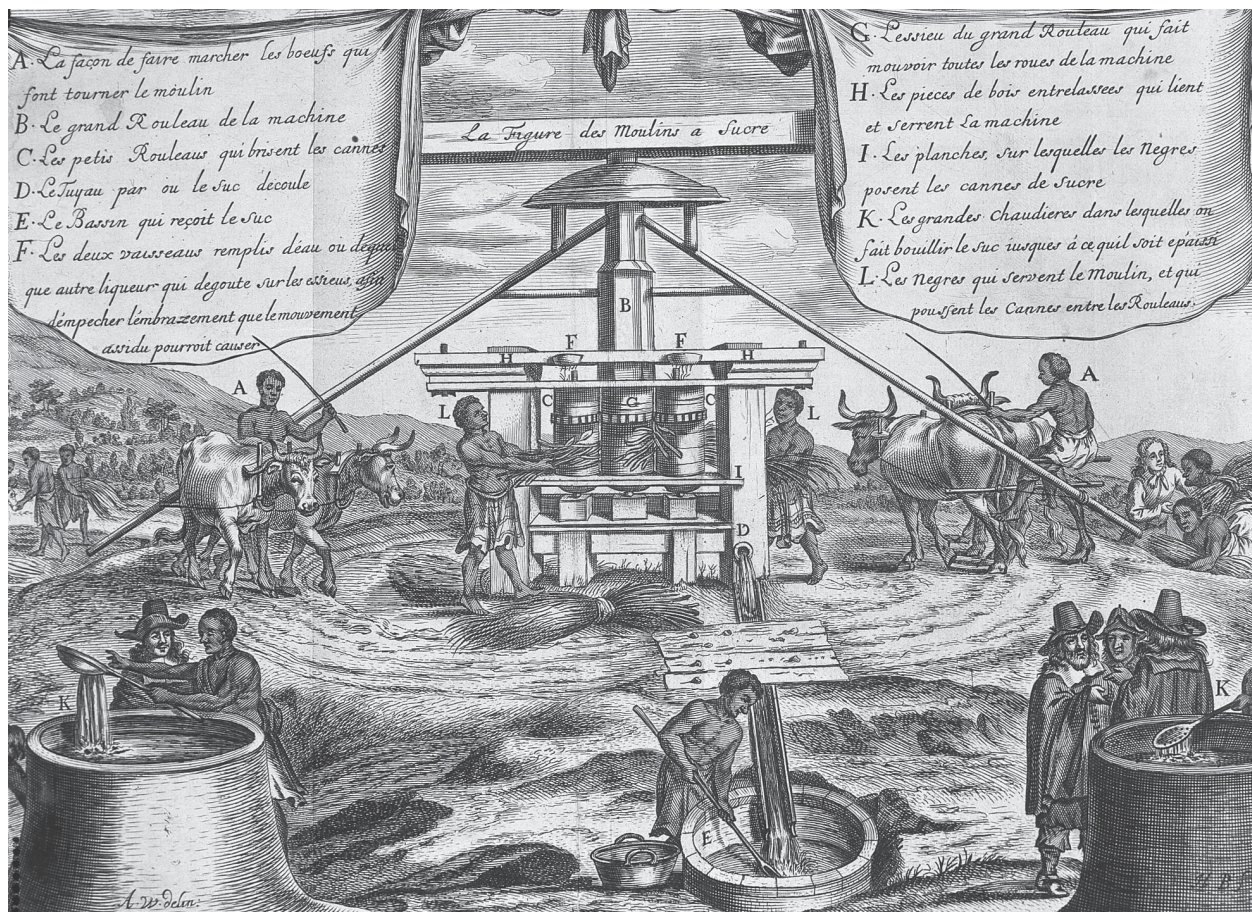 A. La façon de faire marcher les boeufs qui
font tourner le moulin
B. Le grand Rouleau de la machine
C. Les petis Rouleaus qui brisent les cannes
D. Le Tuyau par ou le suc decoule
E. Le Bassin qui reçoit le suc
F. Les deux vaisseaus remplis déau où de quel
que autre liqueur qui degoute sur les essieus, afin
démpecher lémbrazement que le mouvement
assidu pourroit causer
La Figure des Moulins a Sucre
G. Lessieu du grand Rouleau qui fait
mouvoir toutes les roues de la machine
H. Les pieces de bois entrelassees qui lient
et serrent La machine
I. Les planches, sur lesquelles les Negres
posent les cannes de Sucre
K. Les grandes Chaudieres dans lesquelles on
fait bouillir le suc iusques á ce quil soit epaissi
L. Les Negres qui servent le Moulin, et qui
poussent les Cannes entre les Rouleaus.
B
F F
H H
A A
C G C
L L
I
D
K K
E
A. W. delin: